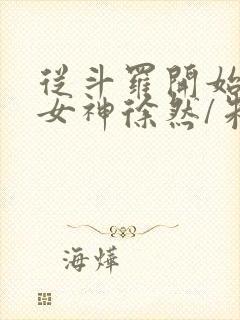 從斗羅開始
女神徐然/朱
海燁